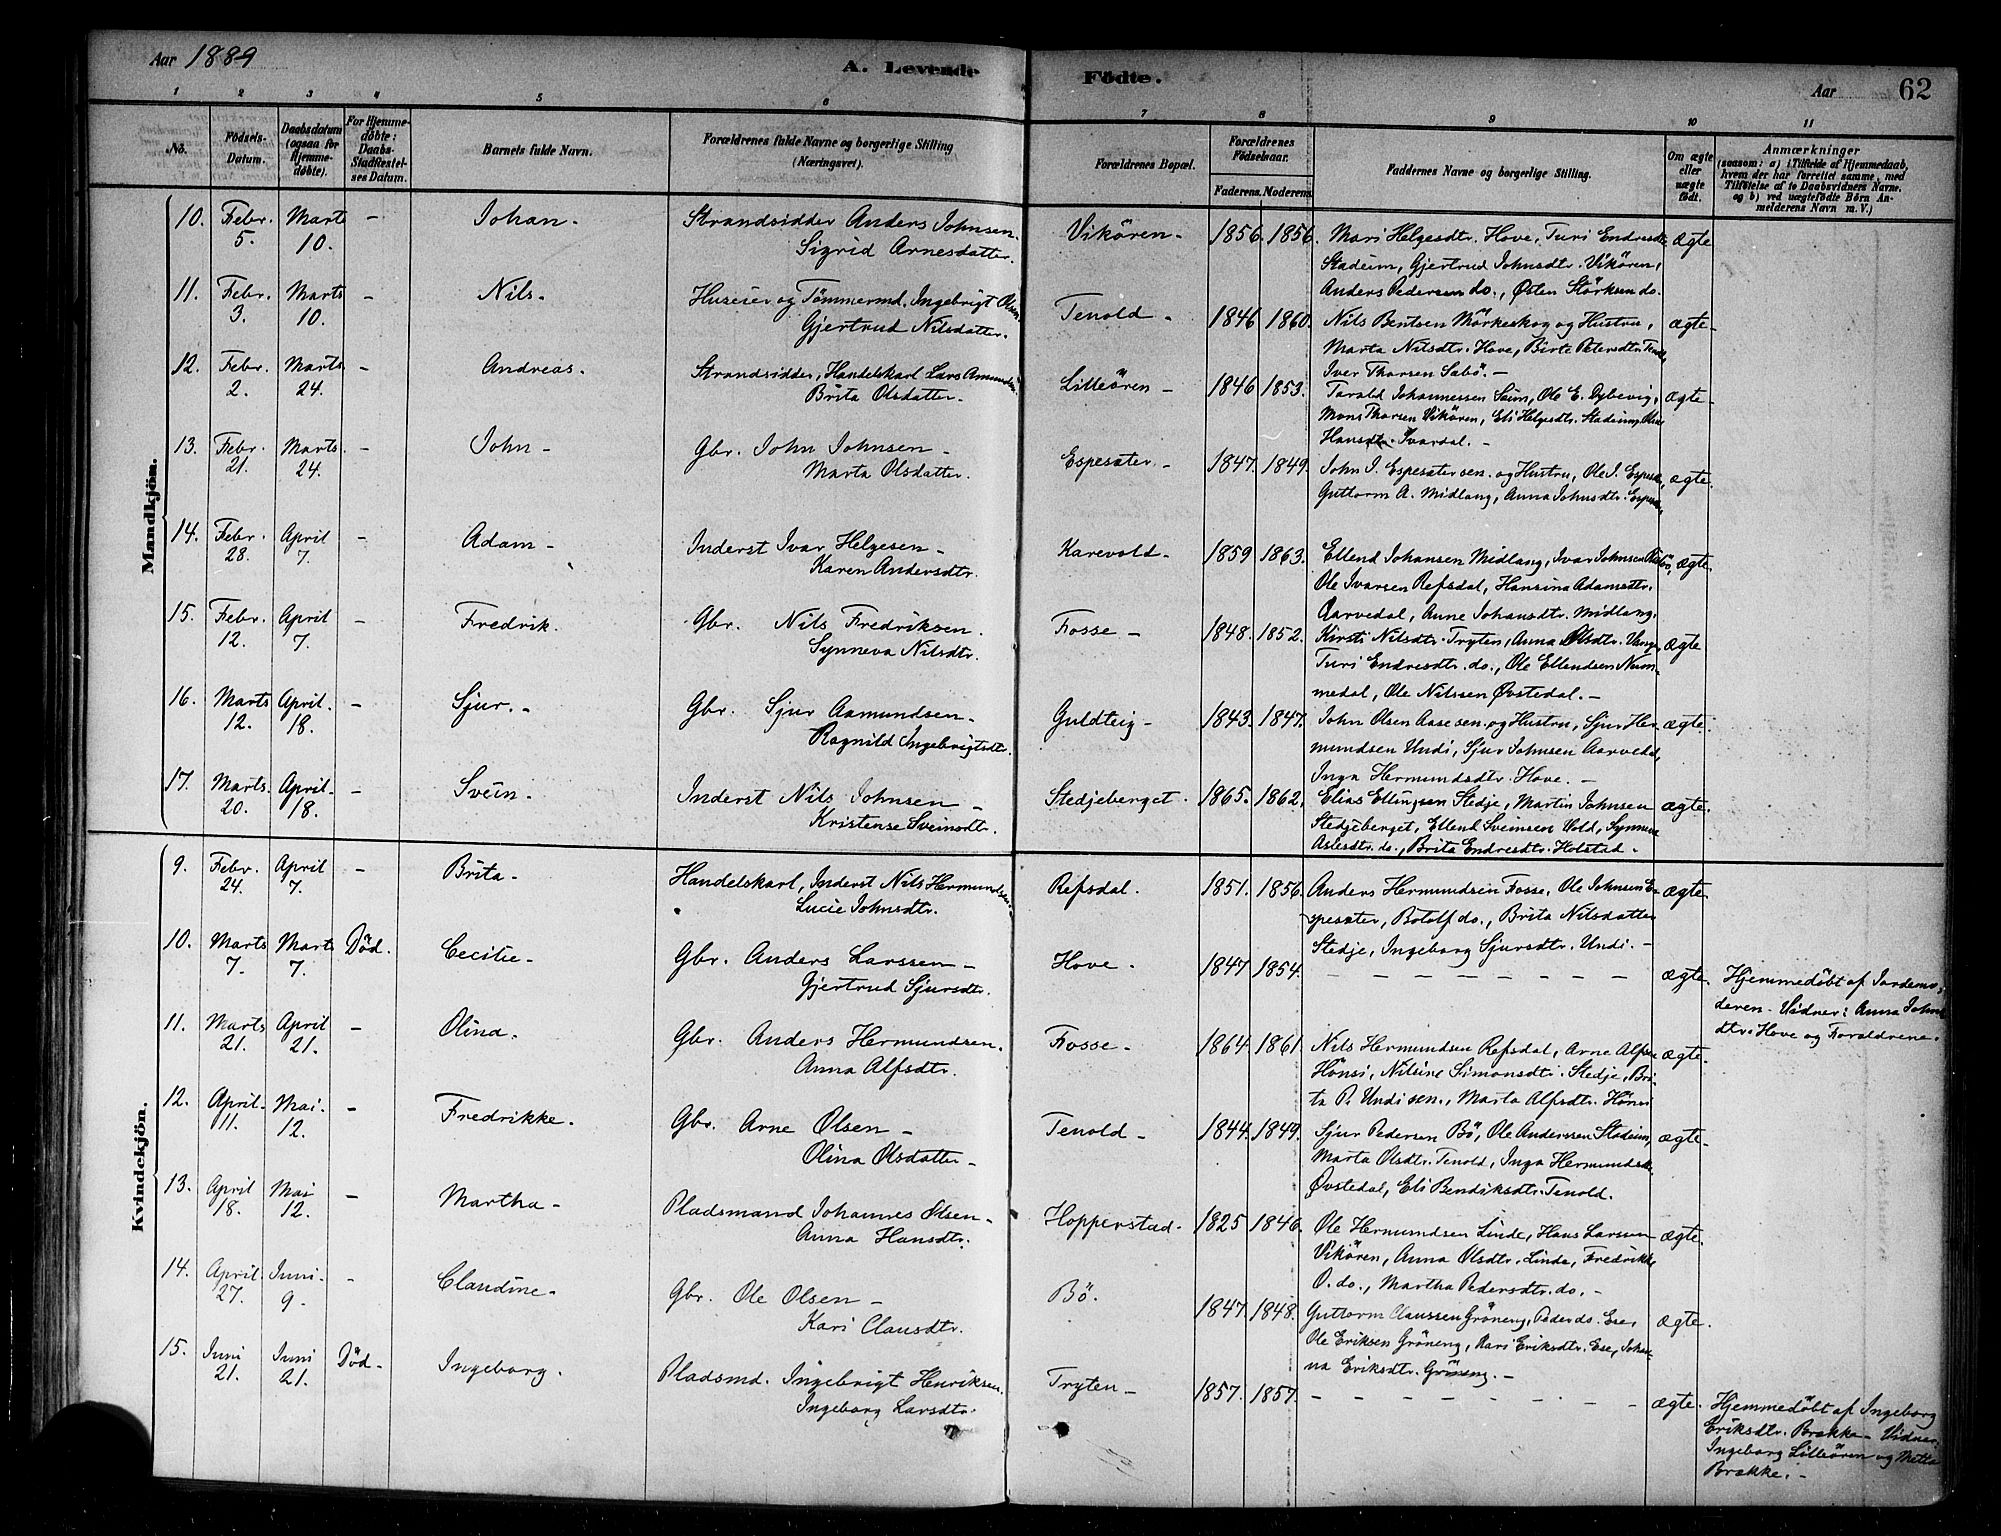 Aar 1889
A. Levende Födte.
Aar 62
1 2 3 4 5 6 7 8 9 10 11
No.
Födsels-
Datum.
Daabsdatum
(ogsaa for
Hjemme-
døbte).
For Hjemme-
døbte:
Daabs-
Stadfæstel-
ses Datum.
Barnets fulde Navn.
Forældrenes fulde Navne og borgerlige Stilling
(Næringsvei).
Forældrenes Bopæl.
Forældrenes
Födselsaar.
Faderens. Moderens.
Faddernes Navne og borgerlige Stilling.
Om ægte
eller
uægte
født.
Anmærkninger
(saasom: a) i Tilfælde af Hjemmedaab,
hvem der har forrettet samme, med
Tilføielse af to Daabsvidners Navne,
og b) ved uægtefødte Børn An-
melderens Navn m. V.)
Mandkjön.
10. Febr. 5. Marts 10. - Johan. Strandsidder Anders Johnsen. Vikören. 1856. 1856. Mari Helgesdtr. Hove, Turi Endresdtr. ægte
Sigrid Arnesdatter. Stadeim, Gjertrud Johnsdtr. Vikören,
Anders Pedersen do., Østen Störksen do.
11. Febr. 3. Marts 10. - Nils. Huseier og Tömmermd. Ingebrigt Olsen. Tenold. 1846 1860. Nils Bentsen Mörkeskog og Hustru, ægte.
Gjertrud Nilsdatter. Marta Nilsdtr. Hove, Birte Petersdtr. Tenold,
Iver Thorsen Sæbö. -
12. Febr. 2. Marts 24. - Andreas. Strandsidder, Handelskarl Lars Amundsen Lilleören - 1846 1853. Tarald Johannessen Seim, Ole E. Dybevig, ægte.
Brita Olsdatter. Mons Thorsen Vikören, Eli Helgesdtr. Stadeim,
Hansdtr. Ivardal. -
13. Febr. 21. Marts 24. - John - Gbr. John Johnsen - Espesæter. 1847. 1849. John I. Espesæter sen. og Hustru, Ole I. Espes., ægte.
Marta Olsdatter. Guttorm A. Midlang, Anna Johnsdtr. Espes.,
14. Febr. 28. April 7. - Adam - Inderst Ivar Helgesen - Karevold. 1859 1863. Ellend Johansen Midlang, Ivar Johnsen ægte.
Karen Andersdtr. Ole Ivarsen Refsdal, Hansina Adamsdtr.
Aarvedal, Anne Johansdtr. Midlang.
15. Febr. 12. April 7. - Fredrik. Gbr. Nils Fredriksen. Fosse - 1848. 1852. Kirsti Nilsdtr. Tryten, Anna Olsdtr. Vange, ægte
Synneva Nilsdtr. Turi Endresdtr. do., Ole Ellendsen Num-
medal, Ole Nilssen Øvstedal. -
16. Marts 12. April 18. - Sjur. - Gbr. Sjur Aamundsen - Guldteig - 1843. 1847. John Olsen Aase sen. og Hustru, Sjur Her- ægte.
Ragnild Ingebrigtsdtr. mundsen Undi, Sjur Johnsen Aarvedal,
Inga Hermundsdtr. Hove. -
17. Marts 20. April 18. - Svein. Inderst Nils Johnsen - Stedjeberget. 1865. 1862. Elias Ellingsen Stedje, Martin Johnsen ægte.
Kristense Sveinsdtr. Stedjeberget, Ellend Sveinsen Vold, Synneva
Aslesdtr. do., Brita Endresdtr. Holstad. -
Kvindekjön.
9. Febr. 24. April 7. - Brita. Handelskarl, Inderst Nils Hermundsen. Refsdal. 1851. 1856. Anders Hermundsen Fosse, Ole Johnsen Es- ægte.
Lucie Johnsdtr. pesæter, Botolf do., Brita Nilsdatter
Stedje, Ingeborg Sjursdtr. Undi. -
10. Marts 7. Marts 7. Død. Cecilie. Gbr. Anders Larssen - Hove. 1847 1854. - - - - - - - - ægte. Hjemmedøbt af Jordemo-
Gjertrud Sjursdtr. deren. Vidner: Anna Johns-
dtr. Hove og Forældrene.
11. Marts 21. April 21. - Olina. Gbr. Anders Hermundsen. Fosse - 1864. 1861. Nils Hermundsen Refsdal, Arne Alfsen ægte.
Anna Alfsdtr. Hönsi, Nilsine Simonsdtr. Stedje, Bri-
ta P. Undi sen., Marta Alfsdtr. Hönsi
12. April 11. Mai 12. - Fredrikke. Gbr. Arne Olsen - Tenold - 1844. 1849. Sjur Pedersen Bö, Ole Anderssen Stadeim, ægte.
Olina Olsdatter - Marta Olsdtr. Tenold, Inga Hermundsdtr.
Øvstedal, Eli Bendiksdtr. Tenold.
13. April 18. Mai 12. - Martha - Pladsmand Johannes Olsen - Hopperstad. 1825 1846. Ole Hermundsen Linde, Hans Larssen ægte.
Anna Hansdtr. Vikören, Anna Olsdtr. Linde, Fredrikke
O. do., Martha Pedersdtr. do. -
14. April 27. Juni 9. - Claudine. Gbr. Ole Olsen - Bö. 1847. 1848. Guttorm Claussen Gröneng, Peder do. Ese, ægte.
Kari Clausdtr. Ole Eriksen Gröneng, Kari Eriksdtr. Ese, Johan-
na Eriksdtr. Gröneng. -
15. Juni 21. Juni 21. Död - Ingeborg. Pladsmd. Ingebrigt Henriksen. Tryten - 1857. 1857. - - - - - - - ægte. Hjemmedøbt af Ingeborg
Ingeborg Larsdtr. Eriksdtr. Brække - Vidner:
Ingeborg Lilleören og Mette
Brække. -